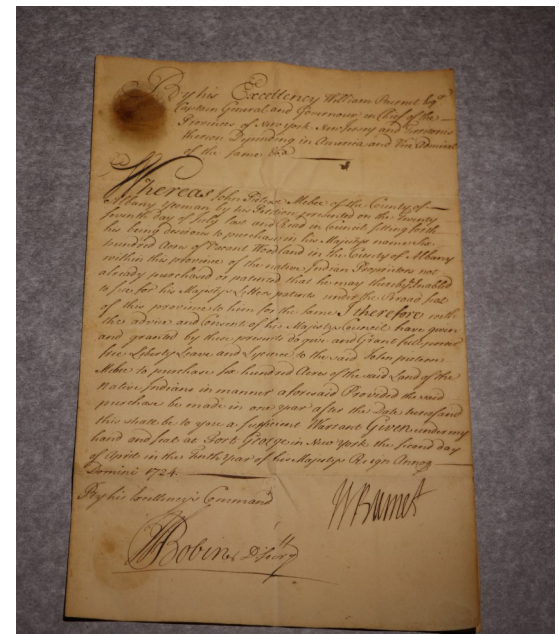 By his Excellency William Burnet Esqr.
Captain General and Governour in Chief of the
Provinces of New York New Jersey and Territories
thereon Depending in America and Vice Admiral
of the same &ca
Whereas John Peterse Mebee of the County of
Albany Yeoman by his Petition presented on the Twenty
seventh day of July last and Read in Council setting forth
his being desirous to purchase in his Majestys name Six
hundred Acres of Vacant Woodland in the County of Albany
within this province of the native Indian Proprietors not
already purchased or patented that he may thereby Enabled
to sue for his Majestys Letters patents under the Broad seal
of this province to him for the same I therefore with
the advice and Consent of his Majestys Council have given
and granted by these presents do give and Grant full power
free Liberty Leave and Lycence to the said John peterse
Mebee to purchase Six hundred Acres of the said Land of the
Native Indians in manner aforesaid Provided the said
purchase be made in one year after the Date hereof and
this shall be to you a sufficient Warrant Given under my
hand and seal at Fort George in New York the second day
of April in the Tenth Year of his Majestys Reign Annoq
Domini 1724.
By his Excellency's Command
W Burnet
Bobin D. Secry